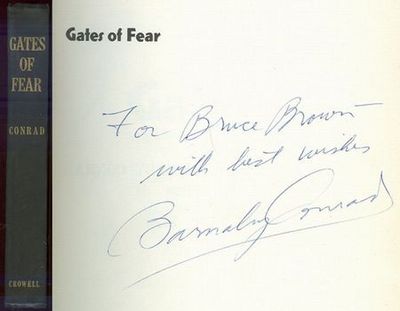 GATES
OF
FEAR
CONRAD
CROWELL
Gates of Fear
For Bruce Brown
with best wishes
Barnaby Conrad